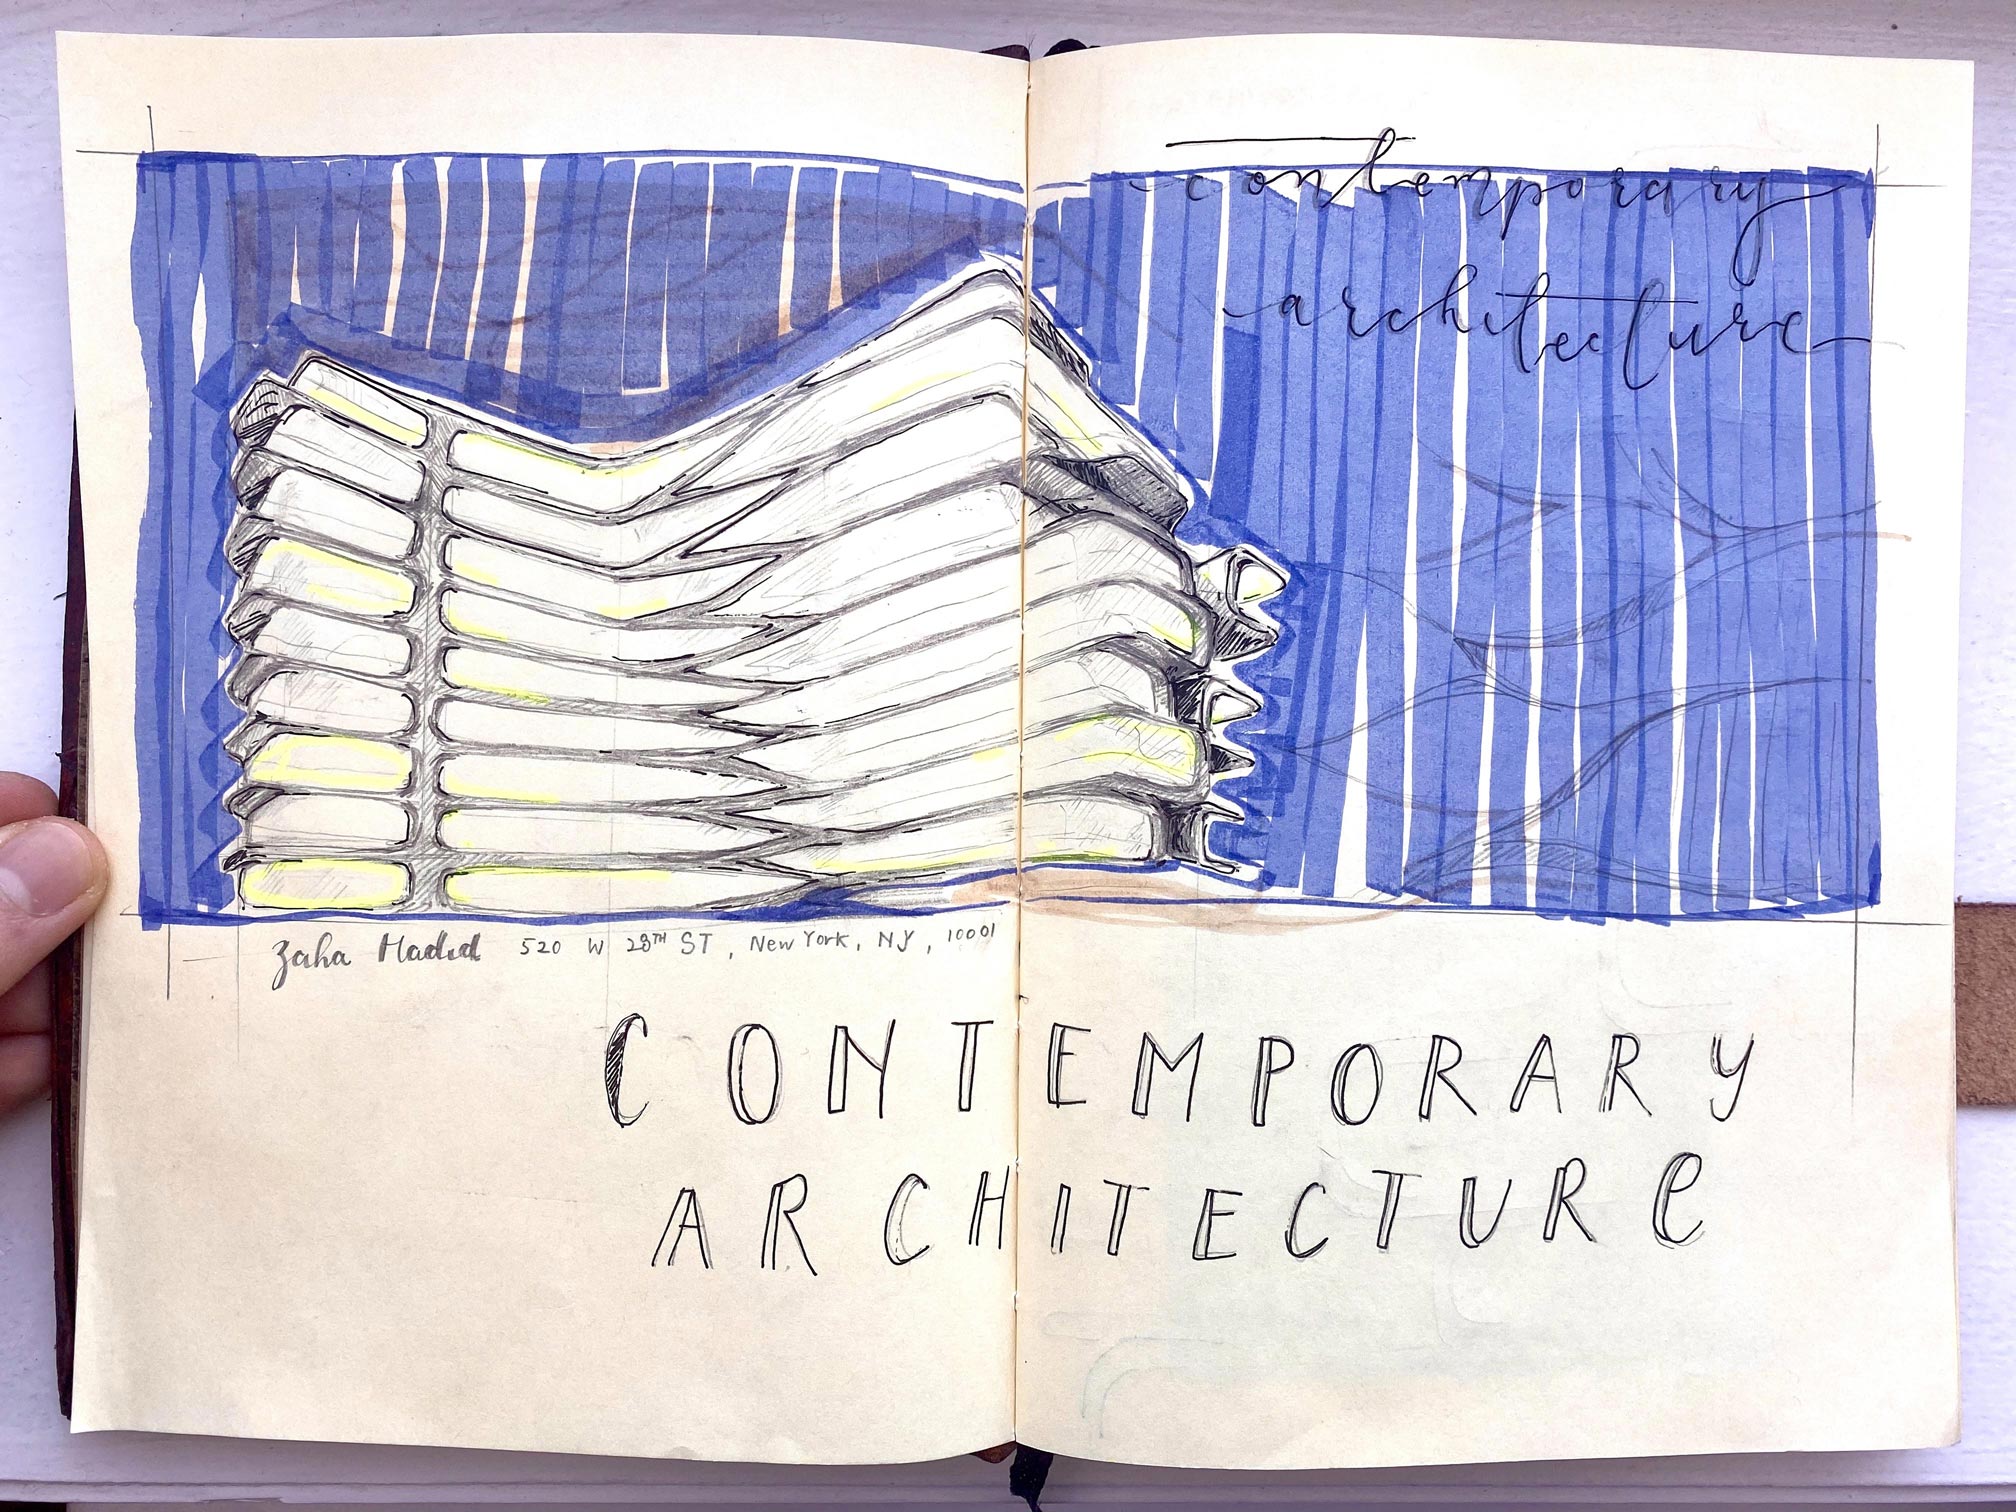 contemporary
architecture
Zaha Hadid 520 W 28TH ST, New York, NY, 10001
CONTEMPORARY
ARCHITECTURE